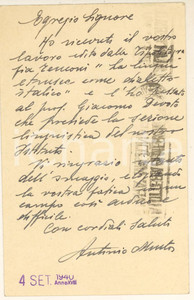 Egregio Signore
Ho ricevuto il vostro
lavoro edito dalla Tipogra
fia Zenoni "La lingua
etrusca come dialetto
italico" e l'ho
al prof. Giacomo Devoto
che presiede la sezione
linguistica del nostro
Istituto.
Vi ringrazio
dell'omaggio, e
la vostra fatica
campo così arduo e
difficile.
Con cordiali saluti
Antonio
4 SET. 1940
Anno XVIII